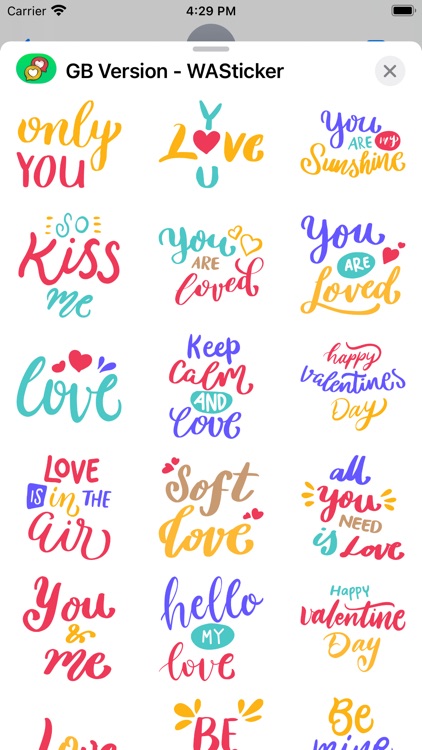 Carrier 4:29 PM
GB Version - WASticker
only
YOU
Y
Love
U
You
ARE my
Sunshine
So
Kiss
me
You
ARE
loved
You
ARE
Loved
love
Keep
Calm
AND
love
happy
valentines
Day
LOVE
IS in THE
air
Soft
love
all
you
NEED
is Love
You
&
me
hello
MY
love
Happy
valentine
Day
Love
BE
Be
mine